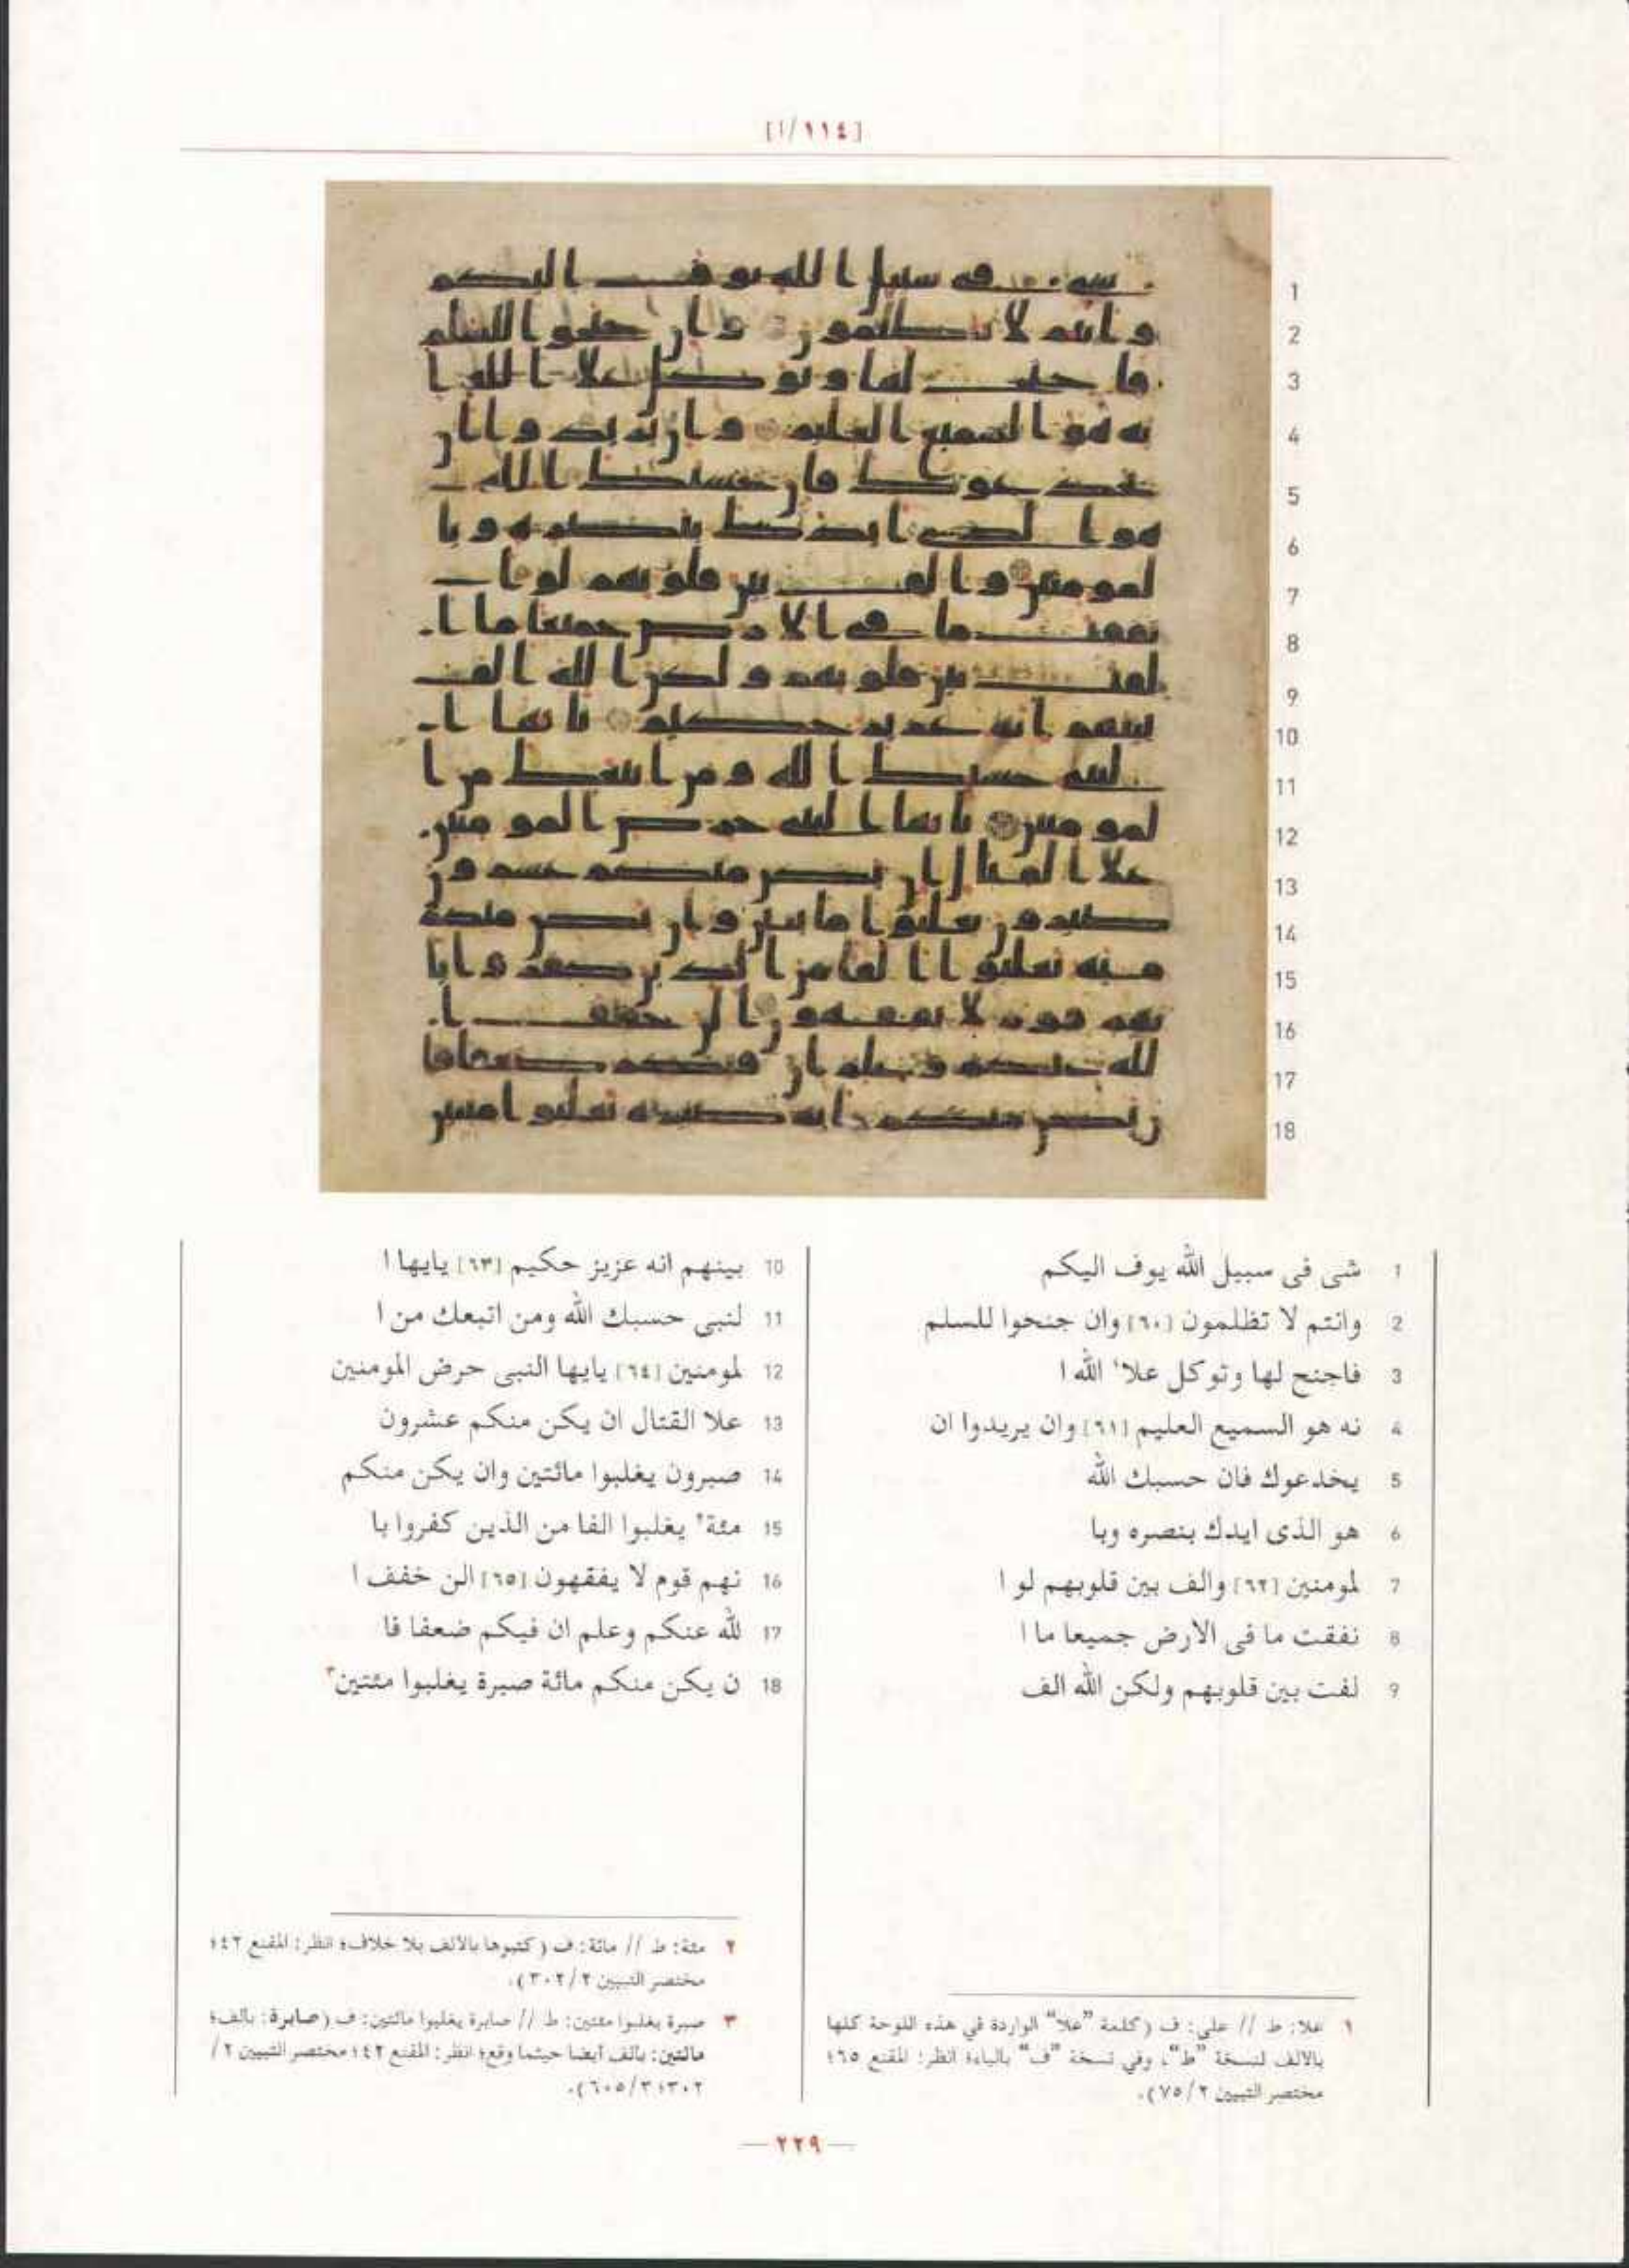 [١١٤/ا]
1
2
3
4
5
6
7
8
9
10
11
12
13
14
15
16
17
18
1 شى فى سبيل الله يوف اليكم
2 وانتم لا تظلمون [٦٠] وان جنحوا للسلم
3 فاجنح لها وتوكل علا١ الله ا
4 نه هو السميع العليم [٦١] وان يريدوا ان
5 يخدعوك فان حسبك الله
6 هو الذى ايدك بنصره وبا
7 لمومنين [٦٢] والف بين قلوبهم لو ا
8 نفقت ما فى الارض جميعا ما ا
9 لفت بين قلوبهم ولكن الله الف
10 بينهم انه عزيز حكيم [٦٣] يايها ا
11 لنبى حسبك الله ومن اتبعك من ا
12 لمومنين [٦٤] يايها النبى حرض المومنين
13 علا القتال ان يكن منكم عشرون
14 صبرون يغلبوا مائتين وان يكن منكم
15 مئة٢ يغلبوا الفا من الذين كفروا با
16 نهم قوم لا يفقهون [٦٥] الن خفف ا
17 لله عنكم وعلم ان فيكم ضعفا فا
18 ن يكن منكم مائة صبرة يغلبوا مئتين٣
١ علا: ط // على: ف (كلمة "علا" الواردة في هذه اللوحة كلها
بالالف لنسخة "ط"، وفي نسخة "ف" بالياء؛ انظر: المقنع ٦٥؛
مختصر التبيين ٧٥/٢).
٢ مئة: ط // مائة: ف (كتبوها بالألف بلا خلاف؛ انظر: المقنع ٤٢؛
مختصر التبيين ٣٠٢/٢).
٣ صبرة يغلبوا مئتين: ط // صابرة يغلبوا مائتين: ف (صابرة: بألف؛
مائتين: بألف أيضا حيثما وقع؛ انظر: المقنع ٤٢؛ مختصر التبيين ٢/
٣٠٢؛ ٦٠٥/٣).
— ٢٢٩ —